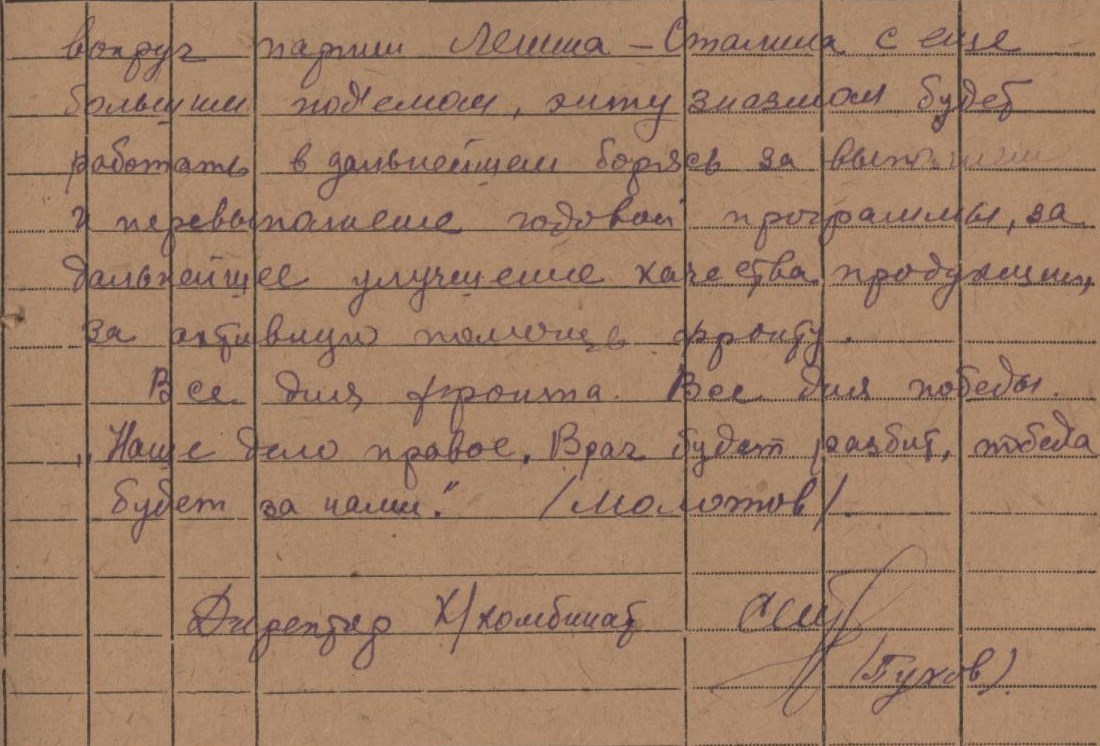 вокруг партии Ленина – Сталина с еще
большим под'емом, энтузиазмом будет
работать в дальнейшем борясь за
и перевыполнение годовой программы, за
дальнейшее улучшение качества продукции,
за активную помощь фронту.
Все для фронта. Все для победы.
„Наше дело правое, Враг будет разбит, победа
будет за нами." /Молотов/.
Директор Х/комбинат
(Пухов).